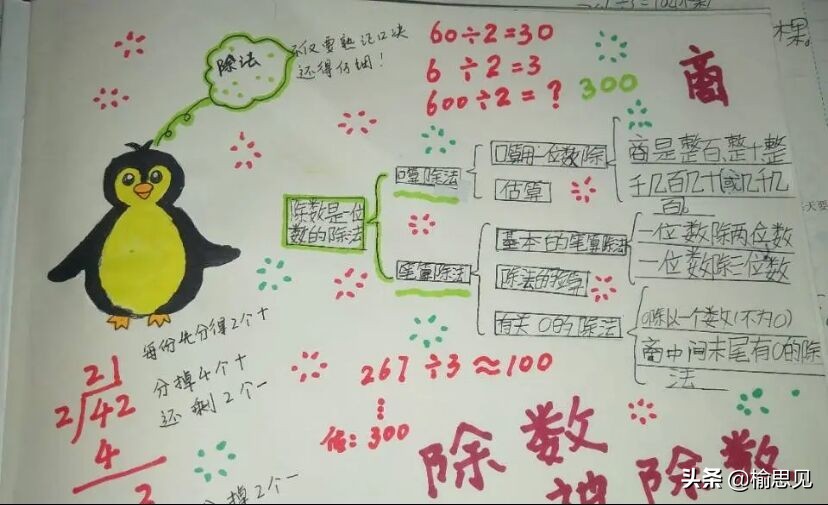 除法
不仅要熟记口诀
还得仔细!
60÷2=30
6÷2=3
600÷2=? 300
商
除数是一位
数的除法
口算除法
口算用一位数除
商是整百、整十、整
千几百几十(或几千几
百)
估算
笔算除法
基本的笔算除法
一位数除两位数
一位数除三位数
除法的验算
有关0的除法
0除以一个数(不为0)
商中间末尾有0的除
法
每份先分得2个十
21
2)42
4
2
分掉4个十
还剩2个一
分掉2个一
267÷3≈100
估:300
除数
被除数
头条@榆思见